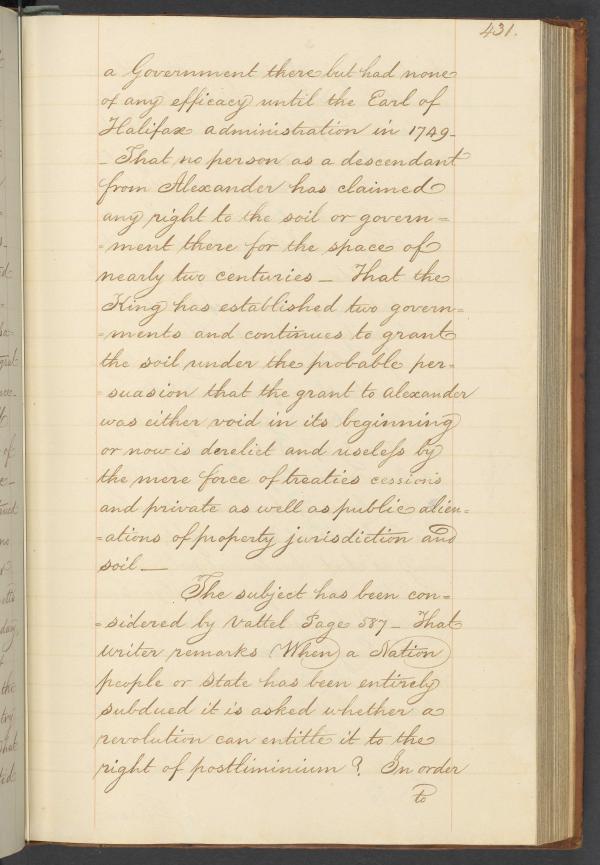 431.
a Government there but had none
of any efficacy until the Earl of
Halifax administration in 1749_
_ That no person as a descendant
from Alexander has claimed
any right to the soil or govern=
=ment there for the space of
nearly two centuries _ That the
King has established two govern=
=ments and continues to grant
the soil under the probable per=
=suasion that the grant to Alexander
was either void in its beginning
or now is derelict and useless by
the mere force of treaties cessions
and private as well as public alien=
=ations of property jurisdiction and
soil _
The subject has been con=
=sidered by Vattel Page 587_ That
writer remarks When a Nation
people or State has been entirely
subdued it is asked whether a
revolution can entitle it to the
right of postliminium? In order
to